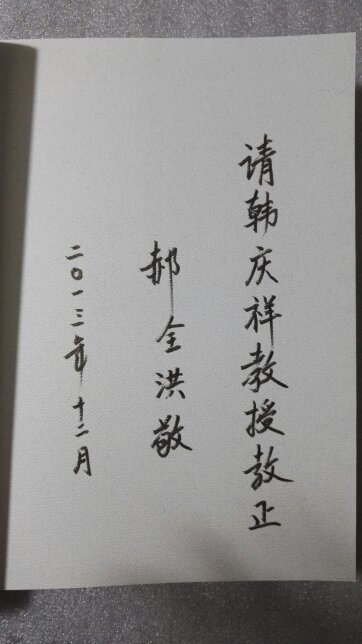 请韩庆祥教授教正
郝全洪敬
二〇一三年十二月